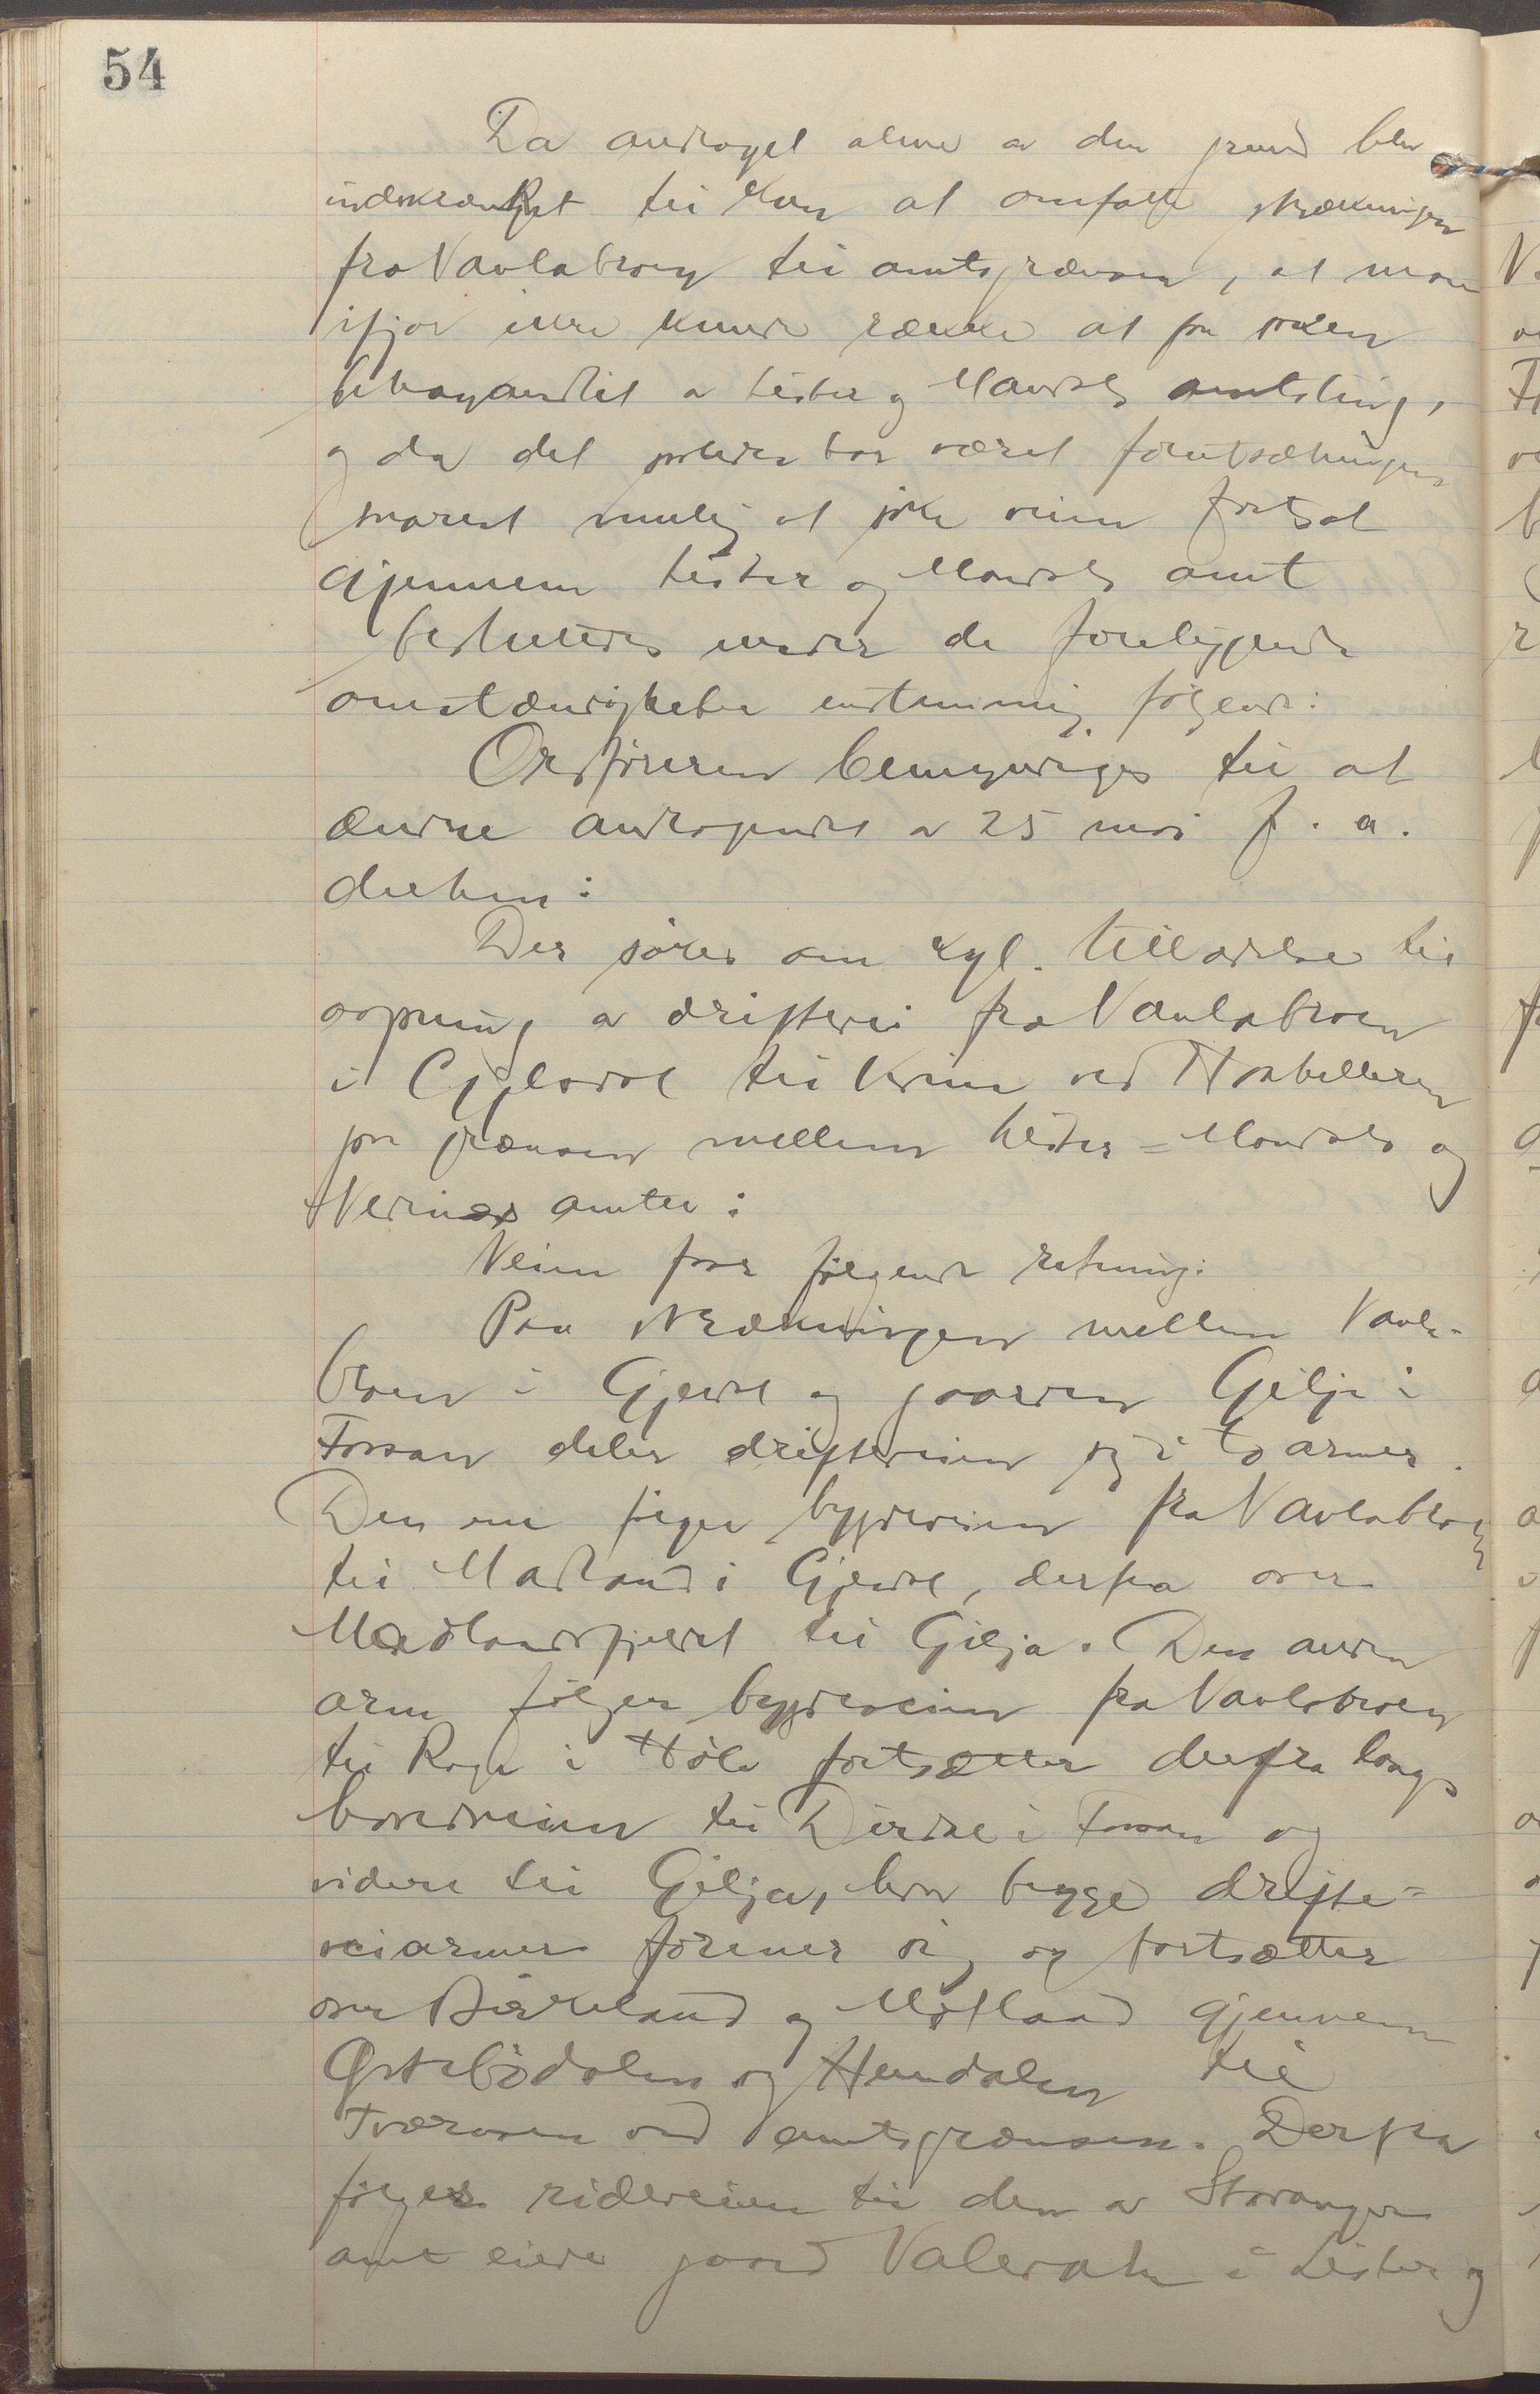 54
Da andraget alene av den grund blev
indskrænket til kun at omfatte strækningen
fra Vaulabroen til amtsgrænsen, at man
ifjor ikke kunde række at faa saken
behandlet av Lister og Mandals amtsting,
og da det senere har været forutsætningen
snarest mulig at søke veien fortsat
gjennem Lister og Mandals amt
besluttedes under de foreliggende
omstændigheter enstemmig følgende:
Ordføreren bemyndiges til at
ændre andragendet av 25 mai f. a.
derhen:
Der søkes om kgl. tilladelse til
aapning av driftevei fra Vaulabroen
i Gjesdal til Kvine ved Knabeheien
paa grænsen mellem Lister = Mandals og
Nedenæs amter:
Veien faar følgende retning:
Paa strækningen mellem Vaula-
broen i Gjesdal og gaarden Gilja i
Forsan deler drifteveien sig i to armer.
Den ene følger bygdeveien fra Vaulabroen
til Madland i Gjesdal, derfra over
Madlandsfjeldet til Gilja. Den anden
arm følger bygdeveien fra Vaulabroen
til Rage i Høle fortsætter derfra langs
hovedveien til Dirdal i Forsan og
videre til Gilja, hvor begge drifte-
veiarmer forener sig og fortsætter
over Birkeland og Motland gjennem
Østebødalen og Hundalen til
Tværaaen ved amtsgrænsen. Derfra
følges rideveien til den av Stavanger
amt eiede gaard Valevatn i Lister og